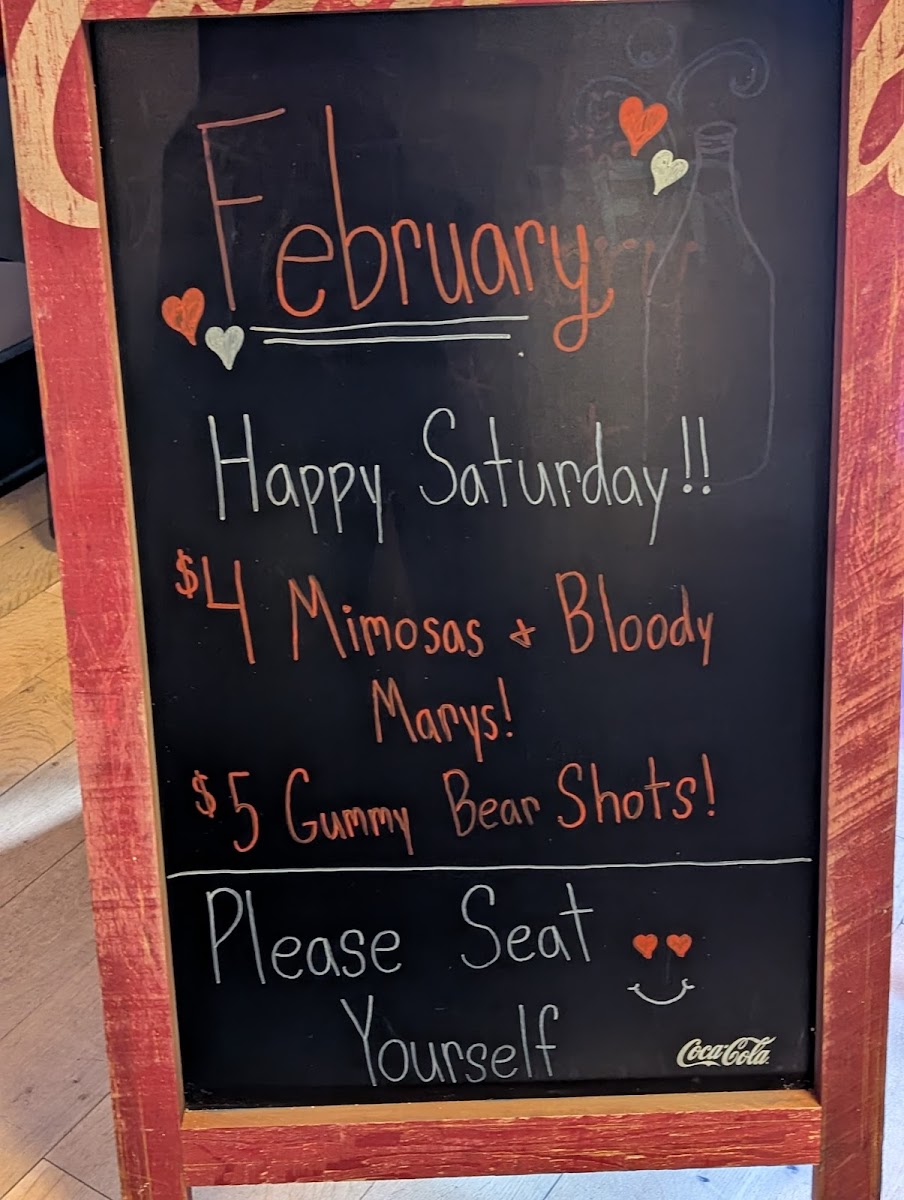 February
Happy Saturday!!
$4 Mimosas & Bloody
Marys!
$5 Gummy Bear Shots!
Please Seat
Yourself
Coca-Cola